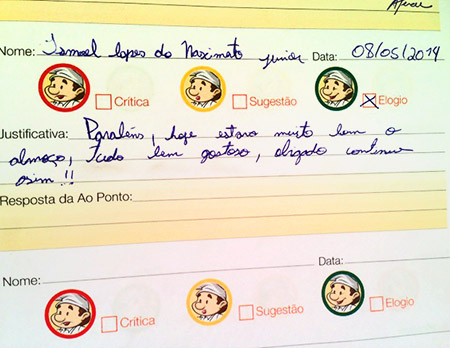 Nome: Ismael lopes do Nascimato junior Data: 08/05/2014
Crítica Sugestão Elogio
Justificativa: Parabéns, hoje estava muito bem o
almoço, tudo bem gostoso, obrigado continue
asim!!
Resposta da Ao Ponto:
Nome: Data:
Crítica Sugestão Elogio